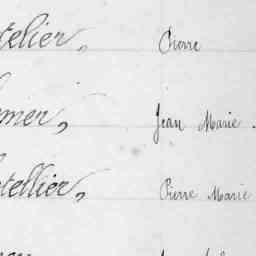 telier, Pierre
mier, Jean Marie.
tellier, Pierre Marie